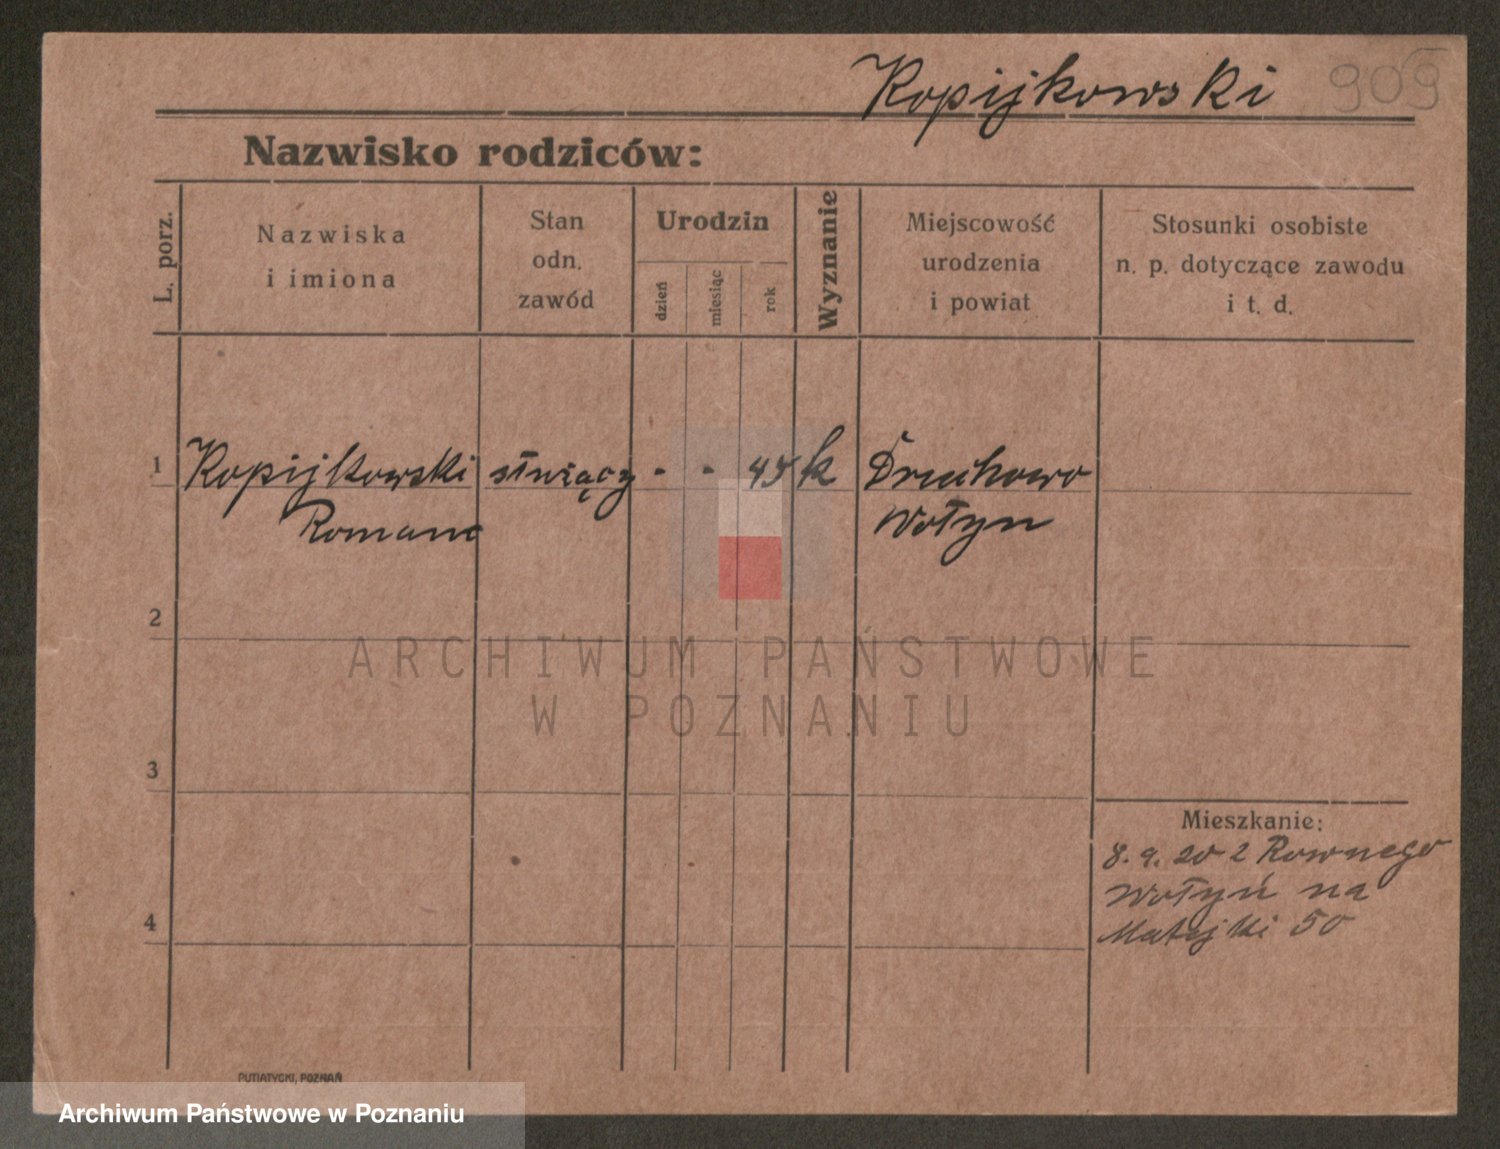 Kopijkowski 909
Nazwisko rodziców:
L. porz.
Nazwiska
i imiona
Stan
odn.
zawód
Urodzin
dzień
miesiąc
rok
Wyznanie
Miejscowość
urodzenia
i powiat
Stosunki osobiste
n. p. dotyczące zawodu
i t. d.
1 Kopijkowski służący - - 45 k
Roman
Wołyn
2
ARCHIWUM PAŃSTWOWE
W POZNANIU
3
Mieszkanie:
8. 9. 20 z Rownego
Wołyń na
Matejki 50
4
PUTIATYCKI, POZNAŃ
Archiwum Państwowe w Poznaniu